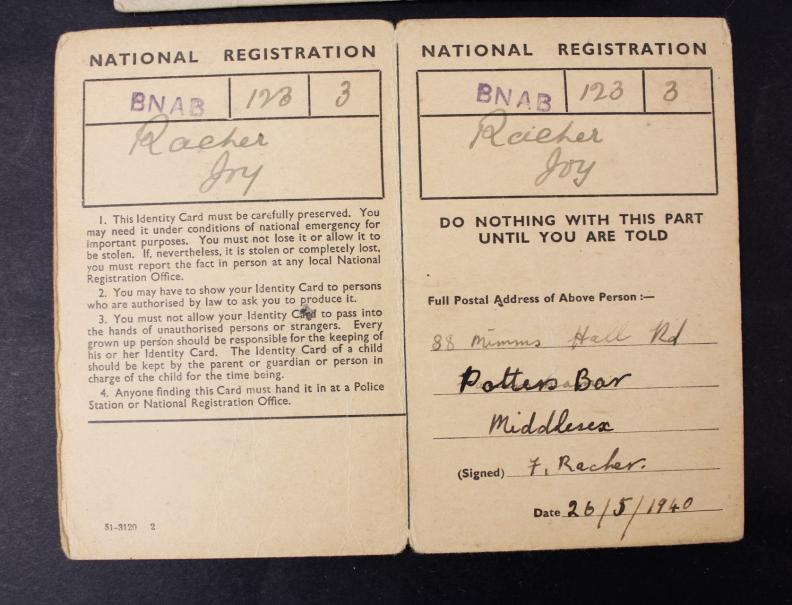 NATIONAL REGISTRATION
BNAB 123 3
Racher
Joy
1. This Identity Card must be carefully preserved. You
may need it under conditions of national emergency for
important purposes. You must not lose it or allow it to
be stolen. If, nevertheless, it is stolen or completely lost,
you must report the fact in person at any local National
Registration Office.
2. You may have to show your Identity Card to persons
who are authorised by law to ask you to produce it.
3. You must not allow your Identity Card to pass into
the hands of unauthorised persons or strangers. Every
grown up person should be responsible for the keeping of
his or her Identity Card. The Identity Card of a child
should be kept by the parent or guardian or person in
charge of the child for the time being.
4. Anyone finding this Card must hand it in at a Police
Station or National Registration Office.
51-3120 2
NATIONAL REGISTRATION
BNAB 123 3
Racher
Joy
DO NOTHING WITH THIS PART
UNTIL YOU ARE TOLD
Full Postal Address of Above Person :—
88 Mimms Hall Rd
Potters Bar
Middlesex
(Signed) F. Racher.
Date 26/5/1940